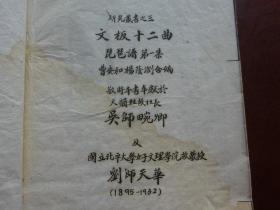 研究叢書之三
文板十二曲
琵琶譜第一集
曹安和楊蔭瀏合編
敬將本書奉獻於
天韻社故社長
吳師畹卿
及
國立北平大學女子文理學院故教授
劉師天華
(1895-1932)